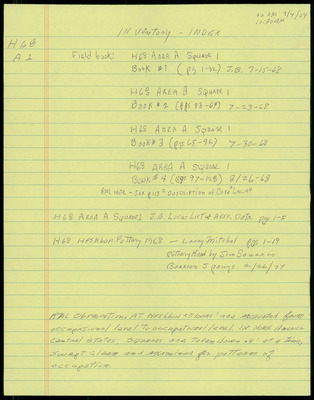 11:30AM
INVENTORY - INDEX
H68
A1
Field book: H68 AREA A SQUARE 1
Book #1 (pg 1-32) J.B. 7-15-68
H68 AREA A SQUARE 1
Book #2 (pgs 33-64) 7-23-68
H68 AREA A SQUARE 1
Book #3 (pgs 65-96) 7-30-68
H68 AREA A SQUARE 1
Book #4 (pgs 97-128) 8/26-68
H68 AREA A SQUARE 1 J.B. Locus List & Assoc. Data pg 1-5
H68 HESHBON Pottery 1968 - Larry Mitchel pgs 1-19
Pottery Read by Jim Sauer
Berrien Springs
Observation: AT Heshbon are excavated from
occupational level to occupational level. IN
Central States, squares are taken down at a time,
swept clean and examined for patterns of
occupation.